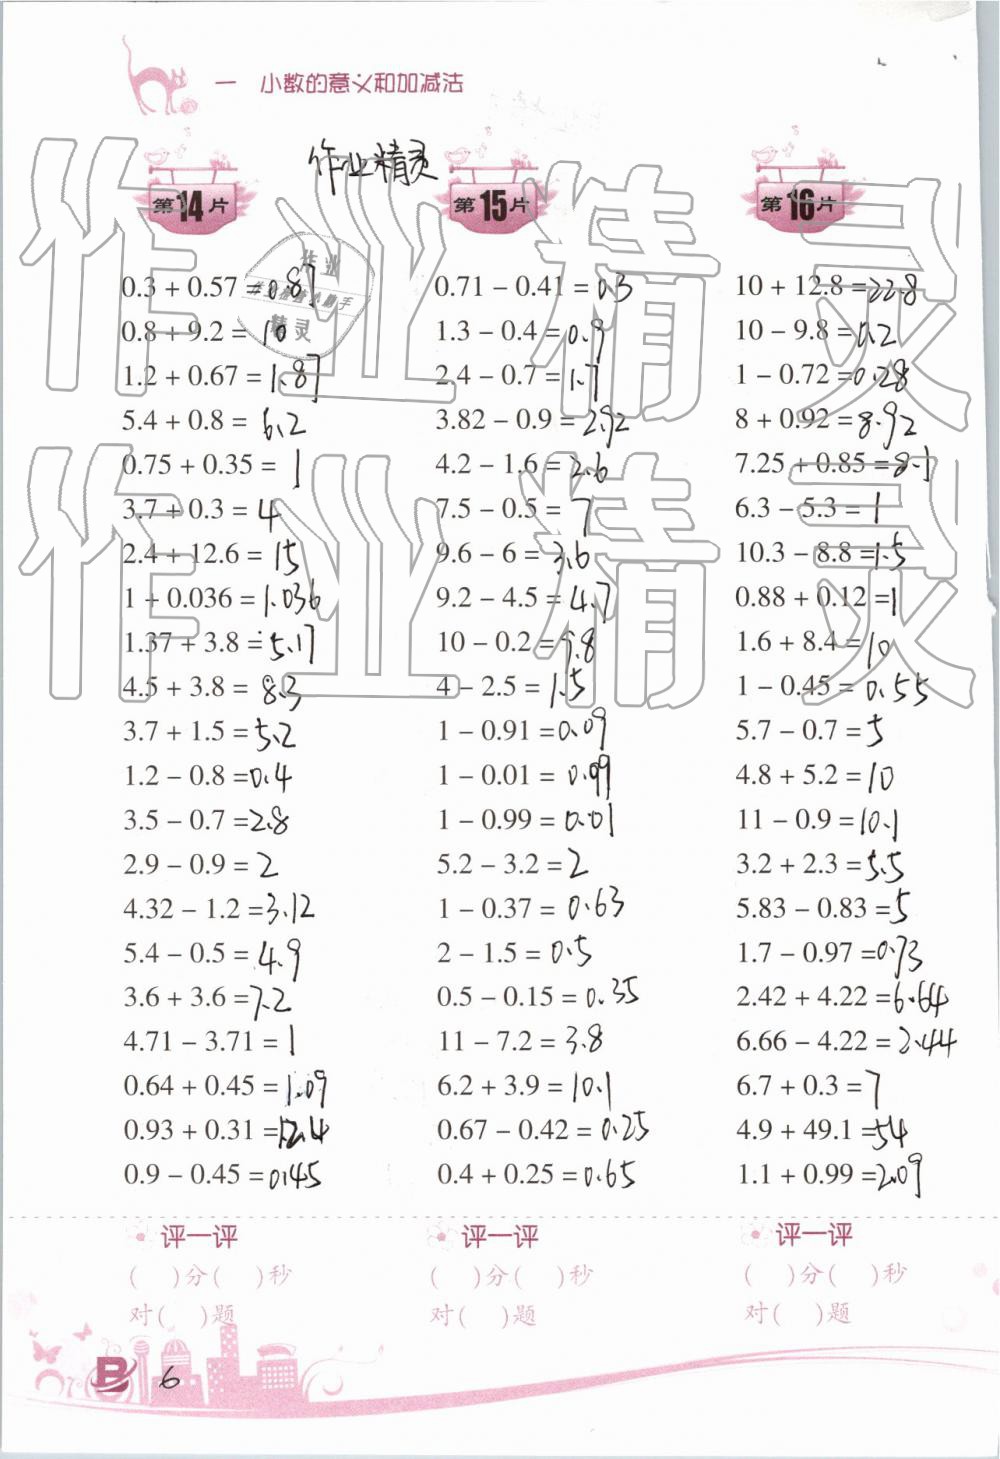 一 小数的意义和加减法
作业精灵
第14片
0.3 + 0.57 = 0.87
0.8 + 9.2 = 10
1.2 + 0.67 = 1.87
5.4 + 0.8 = 6.2
0.75 + 0.35 = 1
3.7 + 0.3 = 4
2.4 + 12.6 = 15
1 + 0.036 = 1.036
1.37 + 3.8 = 5.17
4.5 + 3.8 = 8.3
3.7 + 1.5 = 5.2
1.2 − 0.8 = 0.4
3.5 − 0.7 = 2.8
2.9 − 0.9 = 2
4.32 − 1.2 = 3.12
5.4 − 0.5 = 4.9
3.6 + 3.6 = 7.2
4.71 − 3.71 = 1
0.64 + 0.45 = 1.09
0.93 + 0.31 = 12.4
0.9 − 0.45 = 0.45
评一评
( )分( )秒
对( )题
第15片
0.71 − 0.41 = 0.3
1.3 − 0.4 = 0.9
2.4 − 0.7 = 1.7
3.82 − 0.9 = 2.92
4.2 − 1.6 = 2.6
7.5 − 0.5 = 7
9.6 − 6 = 3.6
9.2 − 4.5 = 4.7
10 − 0.2 = 9.8
4 − 2.5 = 1.5
1 − 0.91 = 0.09
1 − 0.01 = 0.99
1 − 0.99 = 0.01
5.2 − 3.2 = 2
1 − 0.37 = 0.63
2 − 1.5 = 0.5
0.5 − 0.15 = 0.35
11 − 7.2 = 3.8
6.2 + 3.9 = 10.1
0.67 − 0.42 = 0.25
0.4 + 0.25 = 0.65
评一评
( )分( )秒
对( )题
第16片
10 + 12.8 = 22.8
10 − 9.8 = 0.2
1 − 0.72 = 0.28
8 + 0.92 = 8.92
7.25 + 0.85 = 8.1
6.3 − 5.3 = 1
10.3 − 8.8 = 1.5
0.88 + 0.12 = 1
1.6 + 8.4 = 10
1 − 0.45 = 0.55
5.7 − 0.7 = 5
4.8 + 5.2 = 10
11 − 0.9 = 10.1
3.2 + 2.3 = 5.5
5.83 − 0.83 = 5
1.7 − 0.97 = 0.73
2.42 + 4.22 = 6.64
6.66 − 4.22 = 2.44
6.7 + 0.3 = 7
4.9 + 49.1 = 54
1.1 + 0.99 = 2.09
评一评
( )分( )秒
对( )题
作业精灵
作业精灵
作业
精灵
B 6